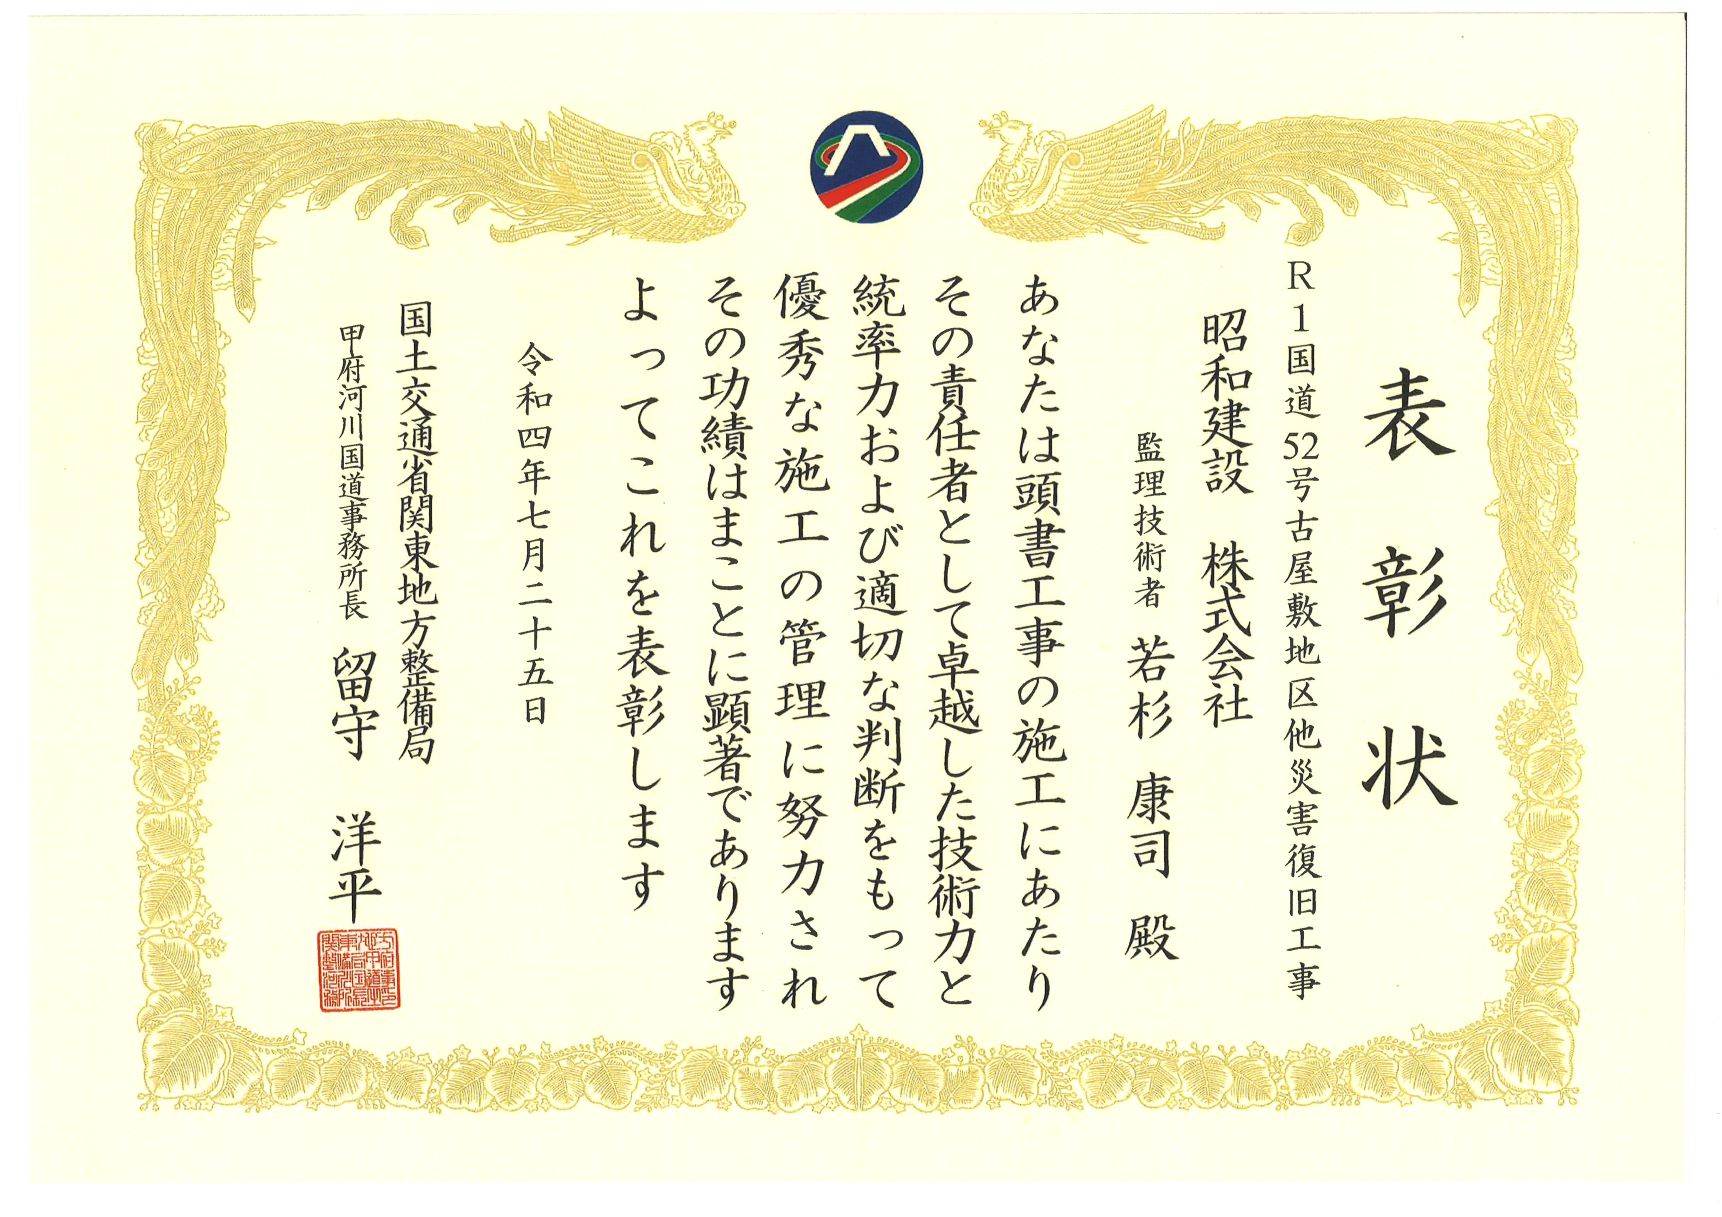 表彰状
R1国道52号古屋敷地区他災害復旧工事
昭和建設 株式会社
監理技術者 若杉 康司 殿
あなたは頭書工事の施工にあたり
その責任者として卓越した技術力と
統率力および適切な判断をもって
優秀な施工の管理に努力され
その功績はまことに顕著であります
よってこれを表彰します
令和四年七月二十五日
国土交通省関東地方整備局
甲府河川国道事務所長 留守 洋平